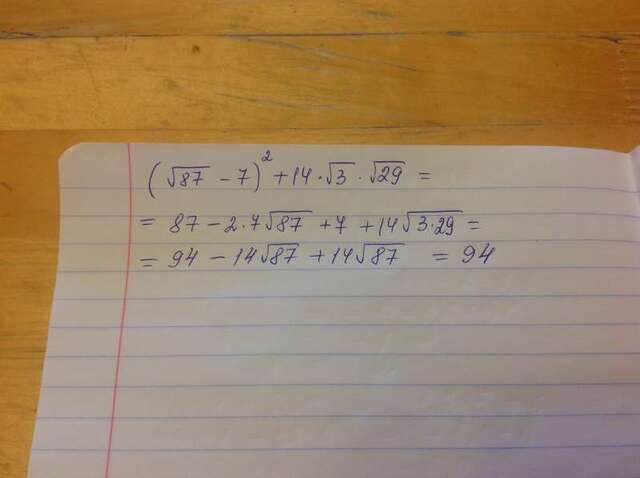 (√87 − 7)² + 14 · √3 · √29 =
= 87 − 2·7√87 + 7 + 14√3·29 =
= 94 − 14√87 + 14√87 = 94